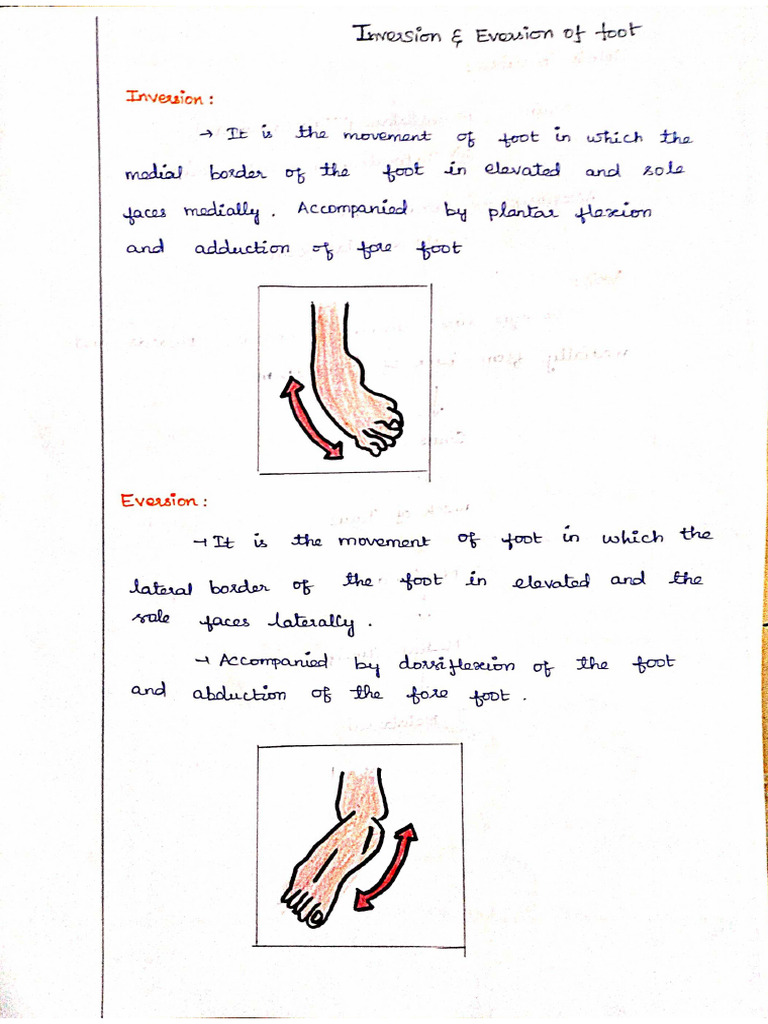 Inversion & Eversion of foot
Inversion :
→ It is the movement of foot in which the
medial border of the foot in elevated and sole
faces medially. Accompanied by plantar flexion
and adduction of fore foot
Eversion :
→ It is the movement of foot in which the
lateral border of the foot in elevated and the
sole faces laterally.
→ Accompanied by dorsiflexion of the foot
and abduction of the fore foot.